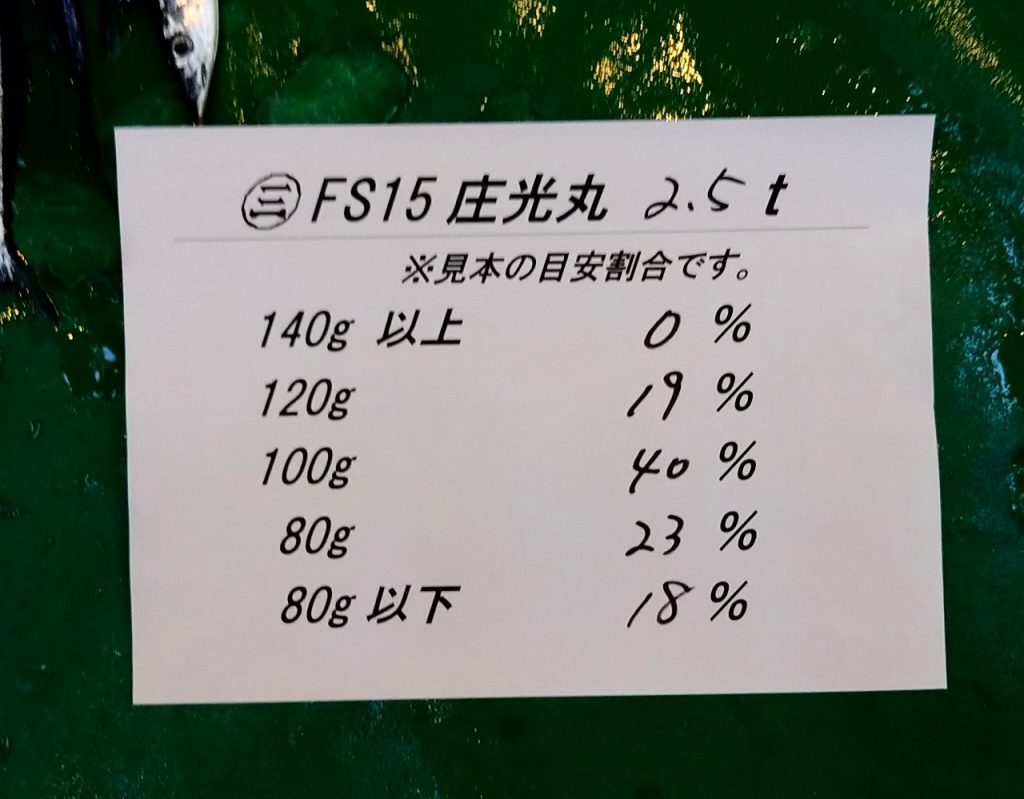 ㊂FS15 庄光丸 2.5 t
※見本の目安割合です。
140g 以上 0 %
120g 19 %
100g 40 %
80g 23 %
80g 以下 18 %